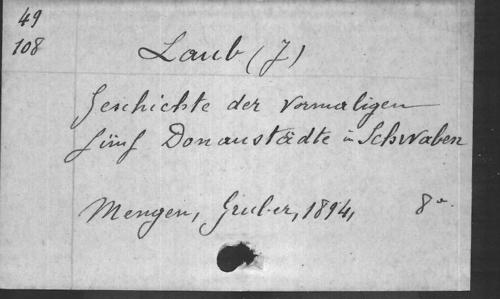 49
108
Laub (J)
Geschichte der vormaligen
fünf Donaustädte in Schwaben
Mengen, Gruber, 1894, 8º.